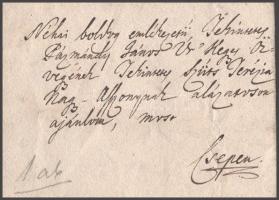 Néhai boldog emlékezetű, Tekintetes
Pázmándy János Úr Hegy Öz-
vegyének Tekintetes Szűts Terézia
Nagy-Asszonynak alázatosan
ajánlom, most
Csepen.